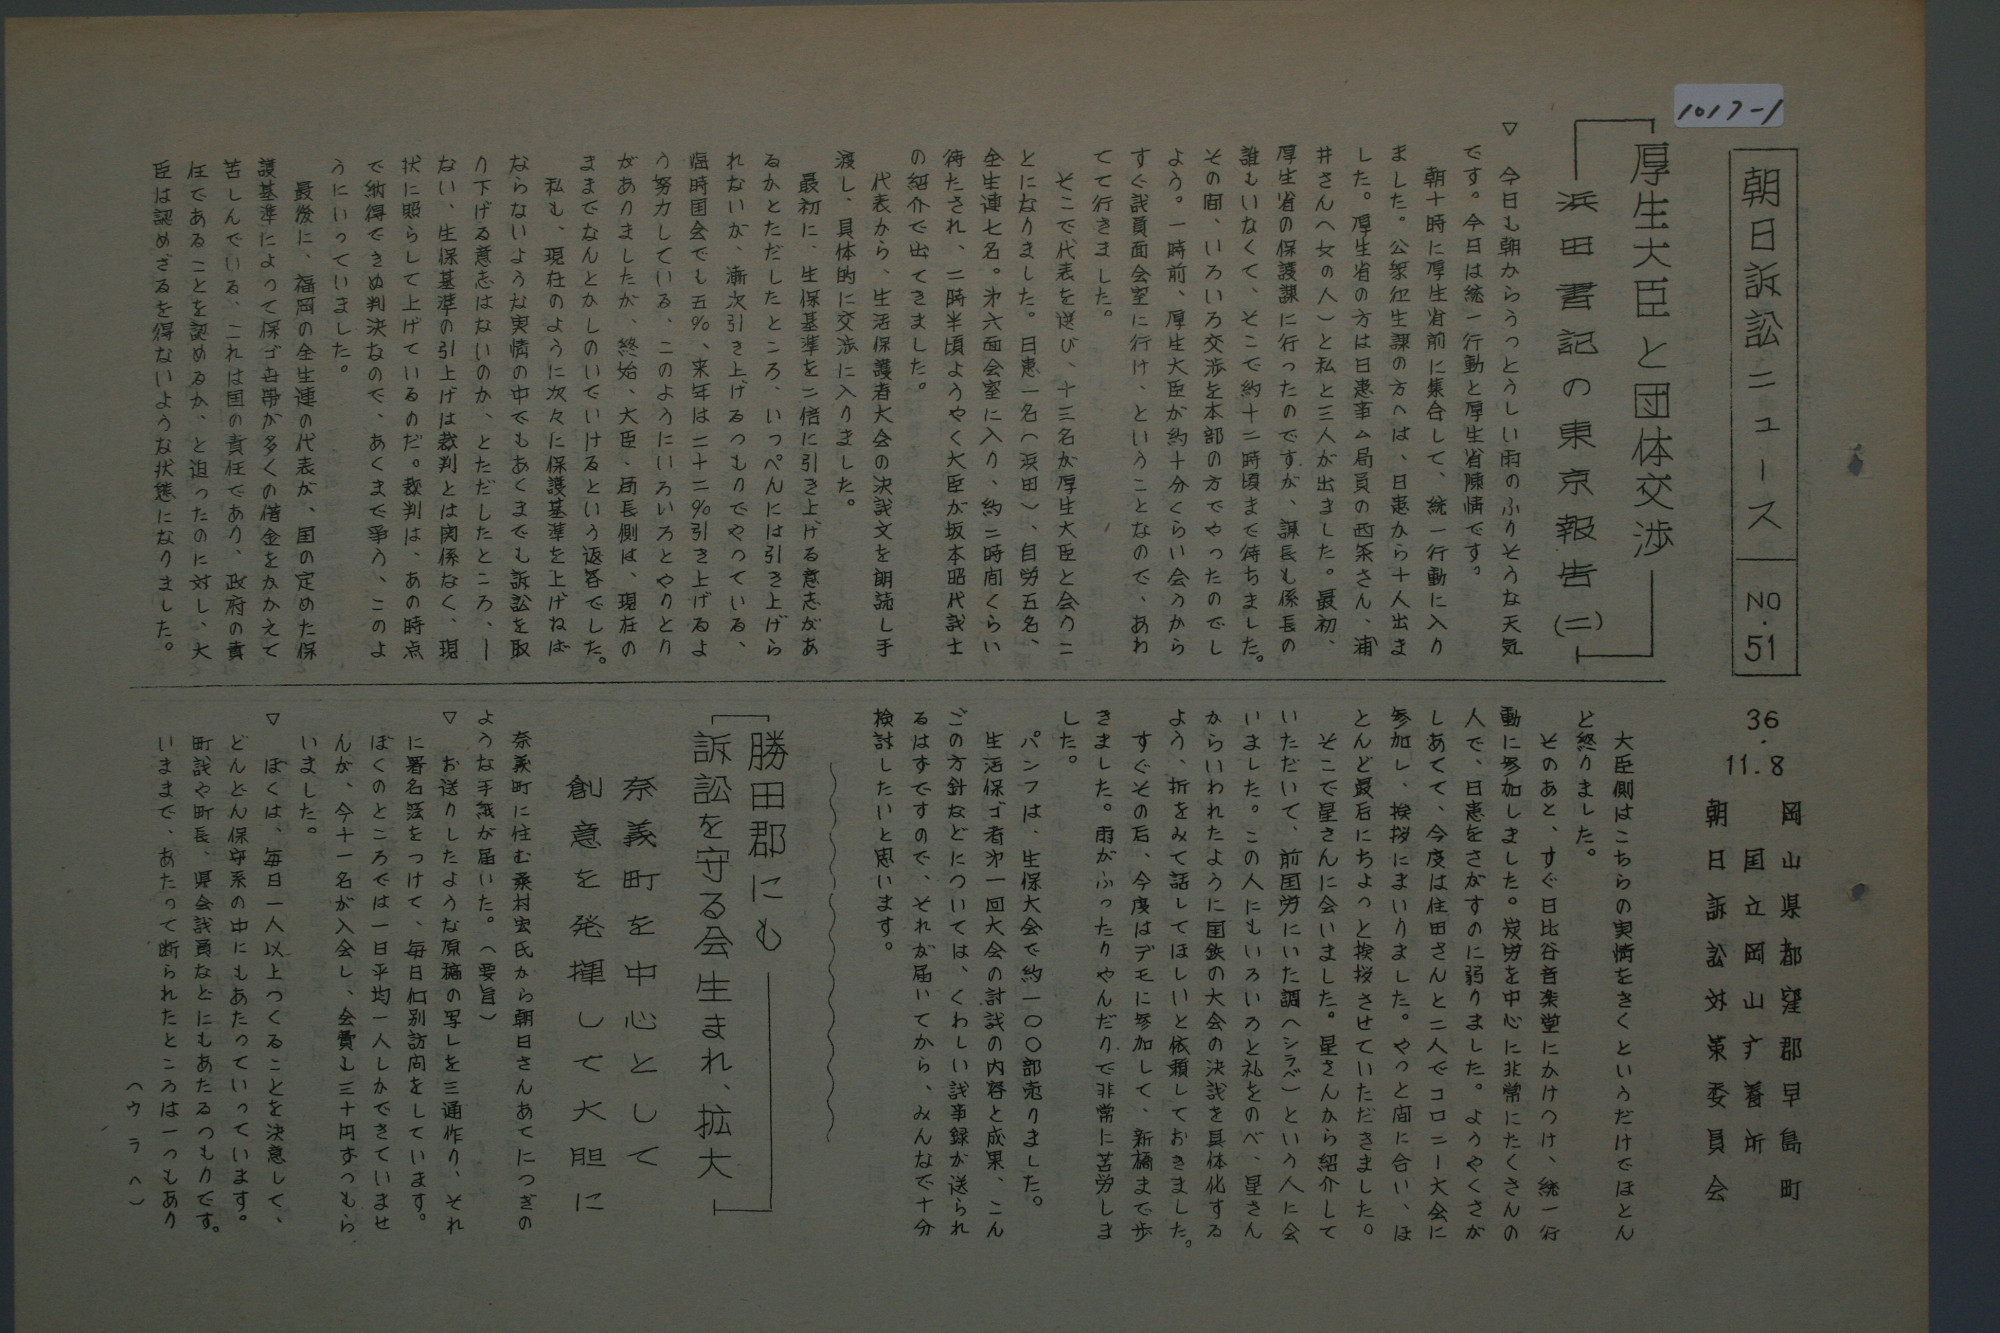 1017-1
朝日訴訟ニュース NO.51
36.11.8
岡山県都窪郡早島町
国立岡山疗養所
朝日訴訟対策委員会
厚生大臣と団体交渉
浜田書記の東京報告(二)
▽ 今日も朝からうっとうしい雨のふりそうな天気
です。今日は統一行動と厚生省陳情です。
朝十時に厚生省前に集合して、統一行動に入り
ました。公衆衛生課の方へは、日患から十人出ま
した。厚生省の方は日患事ム局員の西条さん、浦
井さん(女の人)と私と三人が出ました。最初、
厚生省の保護課に行ったのですが、課長も係長の
誰もいなくて、そこで約十二時頃まで待ちました。
その間、いろいろ交渉を本部の方でやったのでし
よう。一時前、厚生大臣が約十分くらい会うから
すぐ議員面会室に行け、ということなので、あわ
てて行きました。
そこで代表を選び、十三名が厚生大臣と会うこ
とになりました。日患一名(浜田)、自労五名、
全生連七名。第六面会室に入り、約二時間くらい
待たされ、二時半頃ようやく大臣が坂本昭代議士
の紹介で出てきました。
代表から、生活保護者大会の決議文を朗読し手
渡し、具体的に交渉に入りました。
最初に、生保基準を二倍に引き上げる意志があ
るかとただしたところ、いっぺんには引き上げら
れないが、漸次引き上げるつもりでやっている、
臨時国会でも五%、来年は二十二%引き上げるよ
う努力している、このようにいろいろとやりとり
がありましたが、終始、大臣・局長側は、現在の
ままでなんとかしのいでいけるという返答でした。
私も、現在のように次々に保護基準を上げねば
ならないような実情の中でもあくまでも訴訟を取
り下げる意志はないのか、とただしたところ、ー
ない、生保基準の引上げは裁判とは関係なく、現
状に照らして上げているのだ。裁判は、あの時点
で納得できぬ判決なので、あくまで争う、このよ
うにいっていました。
最後に、福岡の全生連の代表が、国の定めた保
護基準によって保ゴ世帯が多くの借金をかかえて
苦しんでいる、これは国の責任であり、政府の責
任であることを認めるか、と迫ったのに対し、大
臣は認めざるを得ないような状態になりました。
大臣側はこちらの実情をきくというだけでほとん
ど終りました。
そのあと、すぐ日比谷音楽堂にかけつけ、統一行
動に参加しました。炭労を中心に非常にたくさんの
人で、日患をさがすのに弱りました。ようやくさが
しあてて、今度は住田さんと二人でコロニー大会に
参加し、挨拶にまいりました。やっと間に合い、ほ
とんど最后にちよっと挨拶させていただきました。
そこで星さんに会いました。星さんから紹介して
いただいて、前国労にいた調(シラベ)という人に会
いました。この人にもいろいろと礼をのべ、星さん
からいわれたように国鉄の大会の決議を具体化する
よう、折をみて話してほしいと依頼しておきました。
すぐその后、今度はデモに参加して、新橋まで歩
きました。雨がふったりやんだりで非常に苦労しま
した。
パンフは、生保大会で約一〇〇部売りました。
生活保ゴ者第一回大会の討議の内容と成果、こん
ごの方針などについては、くわしい議事録が送られ
るはずですので、それが届いてから、みんなで十分
検討したいと思います。
勝田郡にも
訴訟を守る会生まれ、拡大
奈義町を中心として
創意を発揮して大胆に
奈義町に住む桑村宏氏から朝日さんあてにつぎの
ような手紙が届いた。(要旨)
▽ お送りしたような原稿の写しを三通作り、それ
に署名簿をつけて、毎日個別訪問をしています。
ぼくのところでは一日平均一人しかできていませ
んが、今十一名が入会し、会費も三十円ずつもら
いました。
▽ ぼくは、毎日一人以上つくることを決意して、
どんどん保守系の中にもあたっていっています。
町議や町長、県会議員などにもあたるつもりです。
いままで、あたって断られたところは一つもあり
(ウラへ)